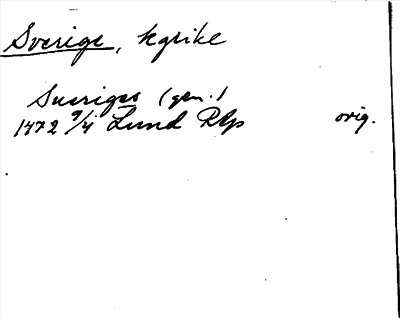 Sverige, kgrike
Sueriges (gen.)
1472 9/4 Lund Rap orig.